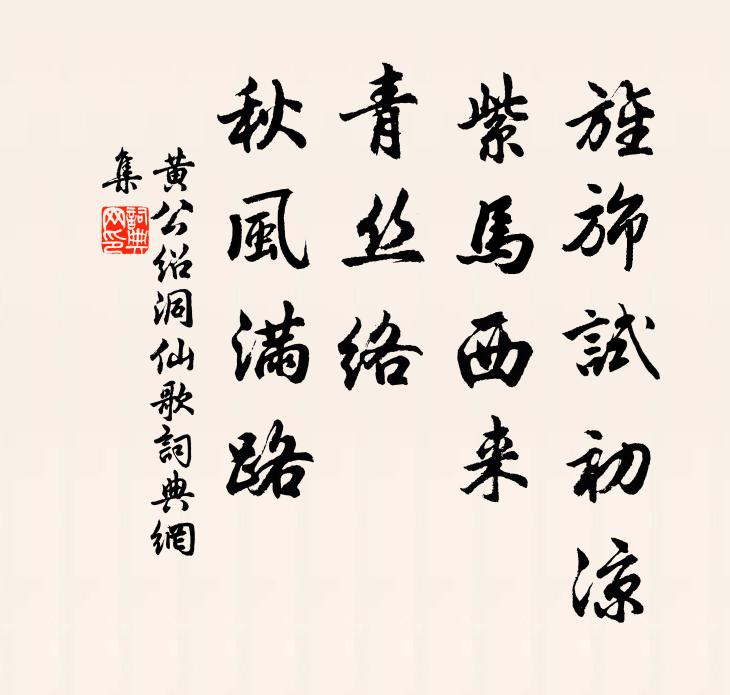 旌旆試初涼
紫馬西来
青丝絡
秋風滿路
黄公紹洞仙歌詞典網
集
詞典
网印